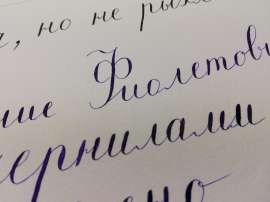 , но не рыхл
ше Фиолетовы
ернилами
ено